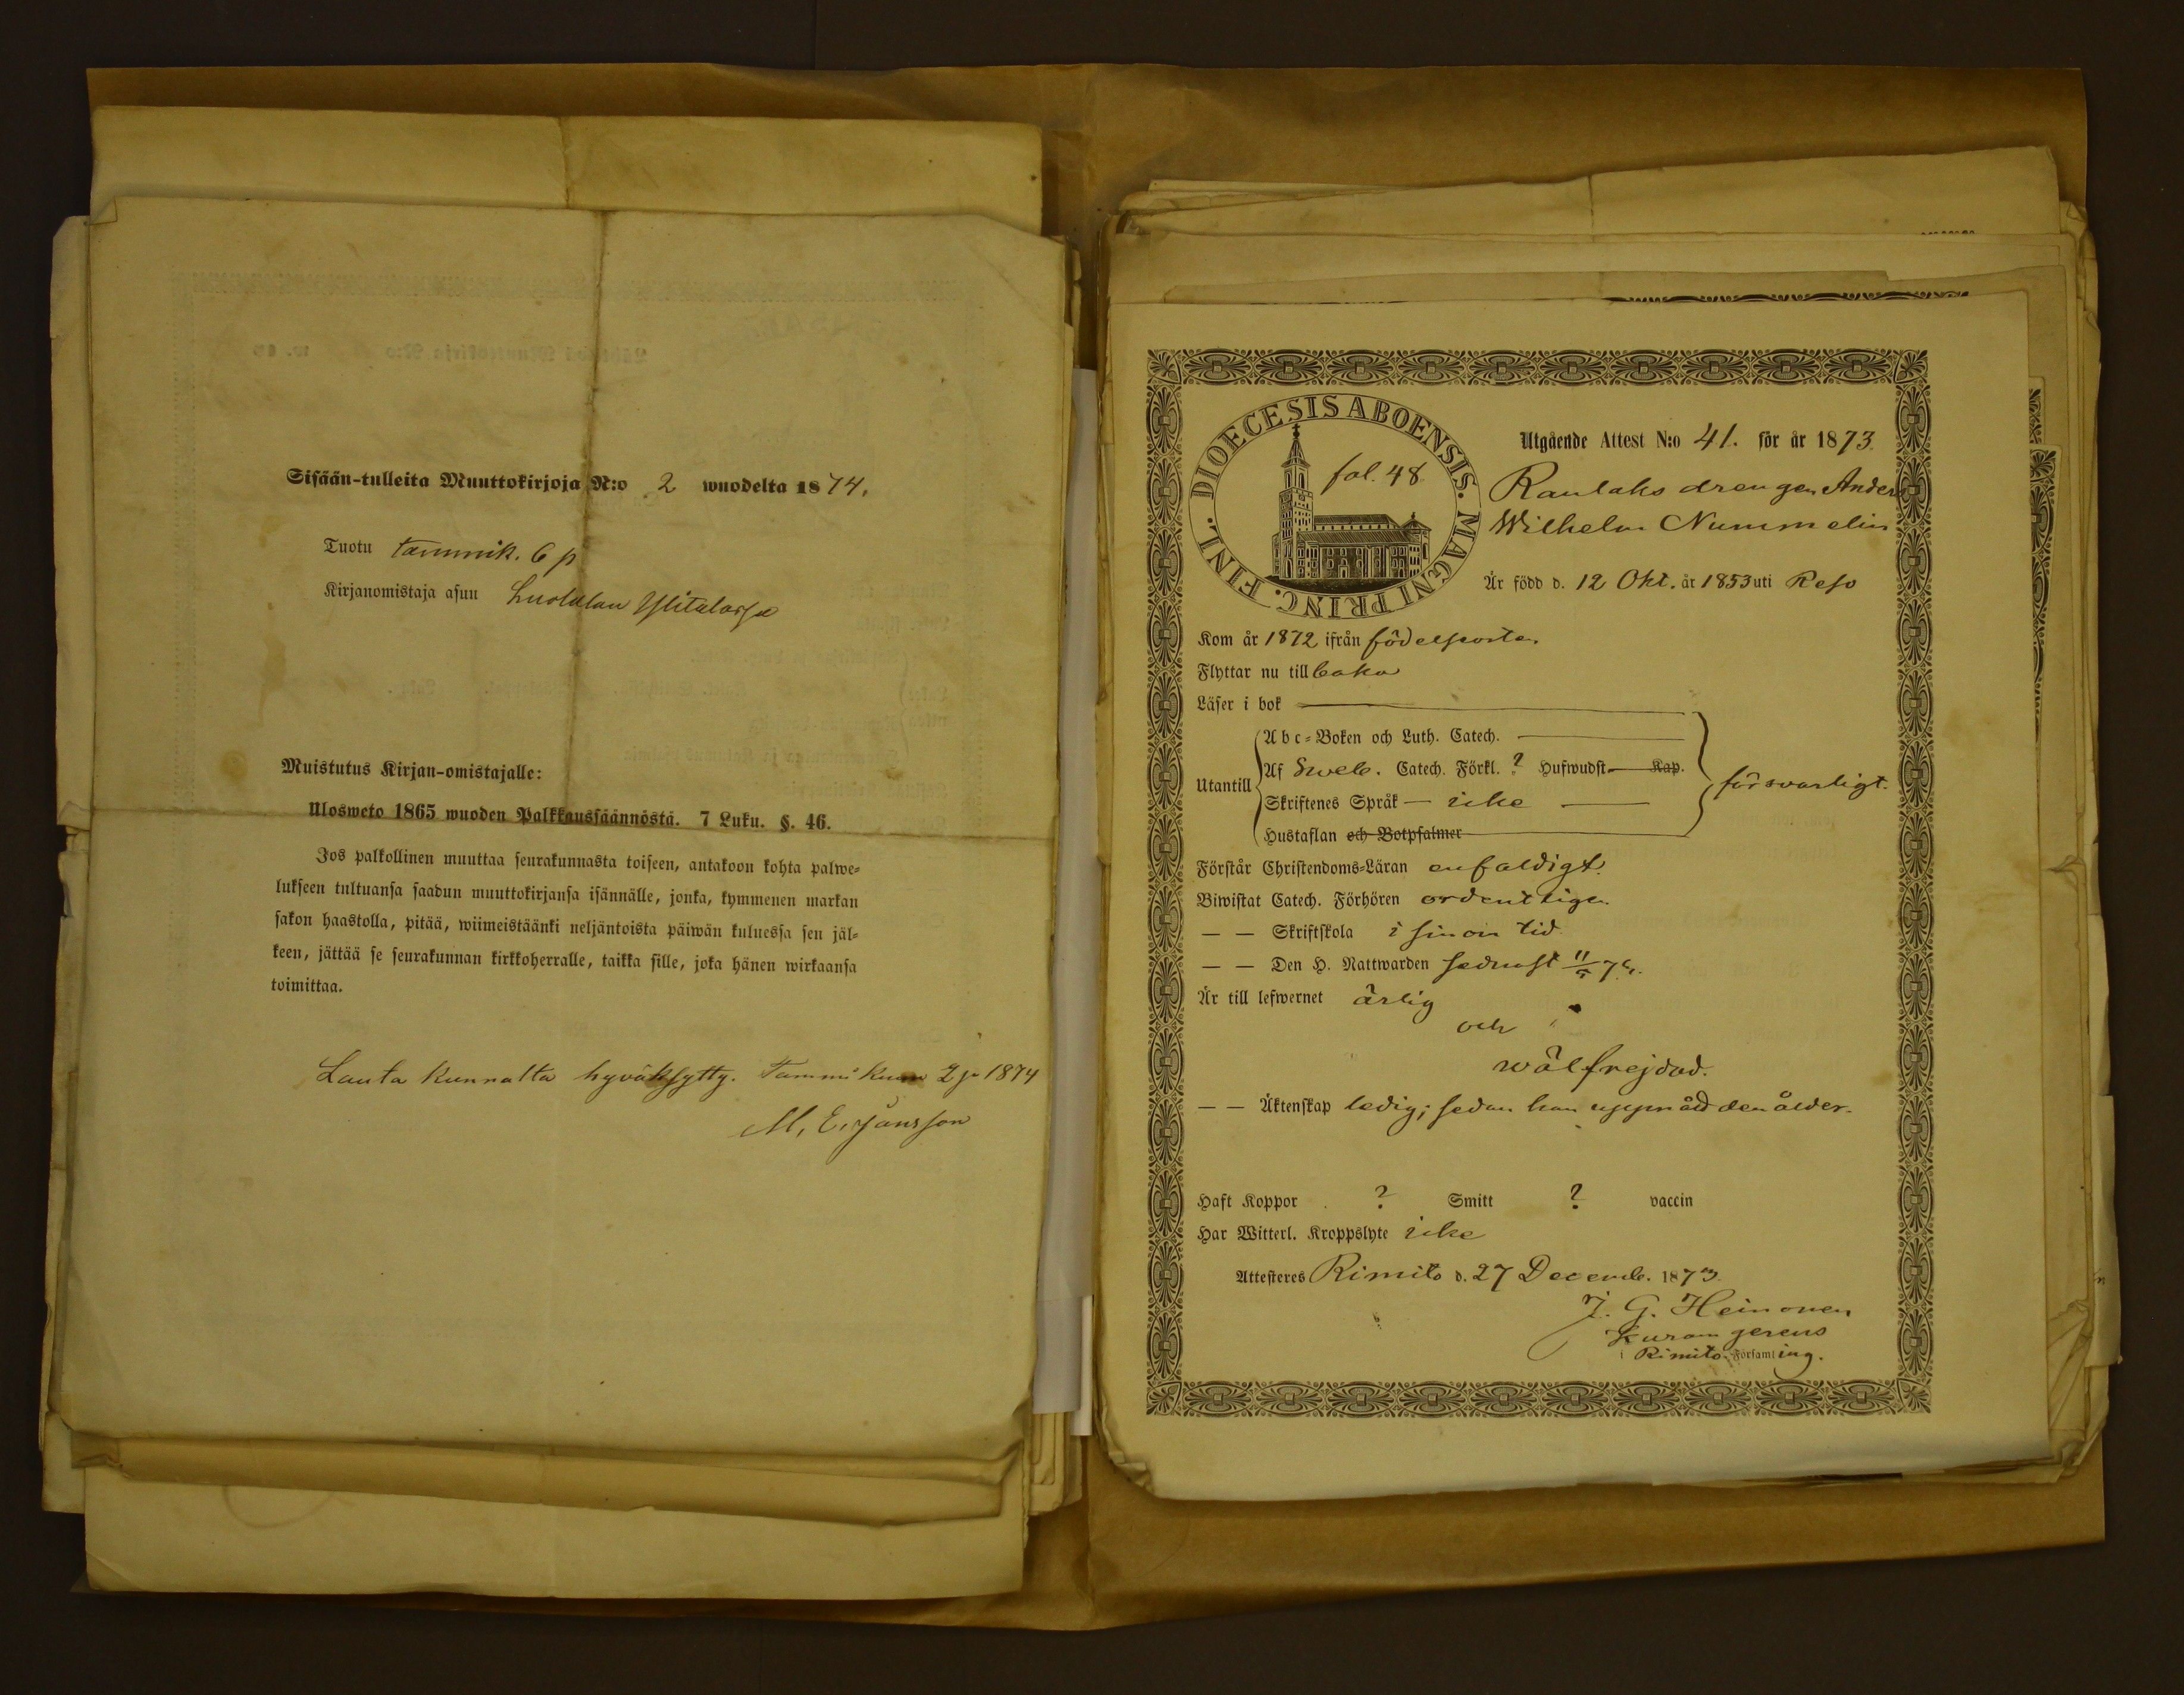 Sisään-tulleita Muuttokirjoja N:o 2 wuodelta 1874.
Tuotu tammik. 6 p
Kirjanomistaja asuu Luolalan Ylitalossa
Muistutus Kirjan-omistajalle:
Ulosweto 1865 wuoden Palkkaussäännöstä. 7 Luku. §. 46.
Jos palkollinen muuttaa seurakunnasta toiseen, antakoon kohta palwe=
lukseen tultuansa saadun muuttokirjansa isännälle, jonka, kymmenen markan
sakon haastolla, pitää, wiimeistäänki neljäntoista päiwän kuluessa sen jäl=
keen, jättää se seurakunnan kirkkoherralle, taikka sille, joka hänen wirkaansa
toimittaa.
Lautakunnalta hyväksytty. Tammikuun 2 p 1874
M. E. Jansson
DIOECESIS ABOENSIS. MAGNI PRINC. FINL.
fol. 48
Utgående Attest N:o 41. för år 1873.
Raulaks drengen Anders
Wilhelm Nummelin
Är född d. 12 Okt. år 1853 uti Reso
Kom år 1872 ifrån födelseorten.
Flyttar nu tillbaka
Läser i bok
Utantill
Abc=Boken och Luth. Catech.
Af Sweb. Catech. Förkl. ? Hufwudst Kap.
Skriftenes Språk — icke
Hustaflan och Botpsalmer
försvarligt.
Förstår Christendoms=Läran enfaldigt.
Biwistat Catech. Förhören ordentligen
— — Skriftskola i sinom tid
— — Den H. Nattwarden sednast
Är till lefwernet ärlig
och
wälfrejdad.
— — Äktenskap ledig; sedan han uppnådd den ålder.
Haft Koppor ? Smitt ? vaccin
Har Witterl. Kroppslyte icke
Attesteres Rimito d. 27 Decemb. 1873.
J. G. Heinonen
Kuram gerens
i Rimito Församling.